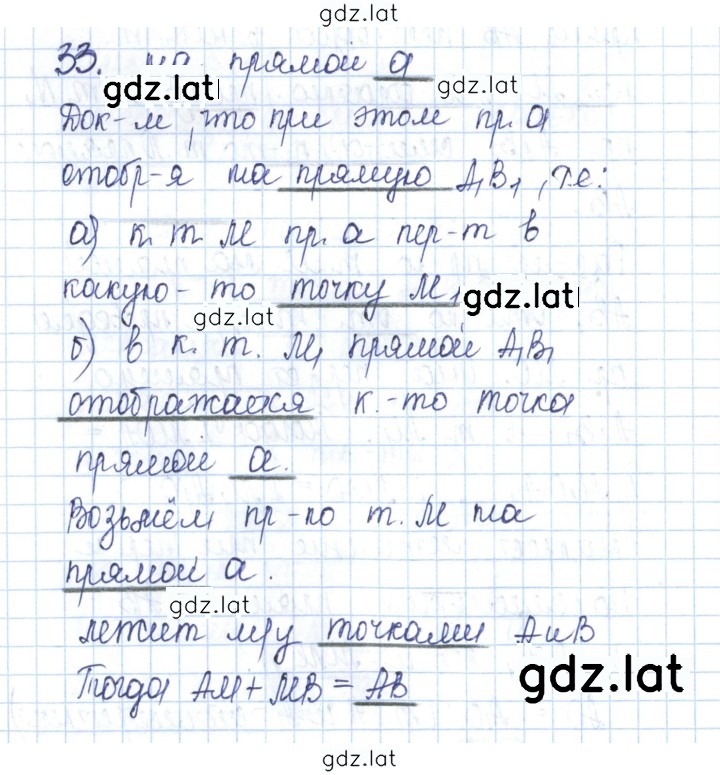 gdz.lat
33. на прямой а
gdz.lat
Док-м, что при этом пр. а
отобр-я на прямую A₁B₁, т.е:
а) к. т. М пр. а пер-т в
какую-то точку М₁ gdz.lat
gdz.lat
б) в к. т. М₁ прямой A₁B₁
отображается к.-то точка
прямой а.
Возьмём пр-ю т. М на
прямой а.
gdz.lat
лежит м/у точками А и В
Тогда АМ + МВ = АВ
gdz.lat
gdz.lat